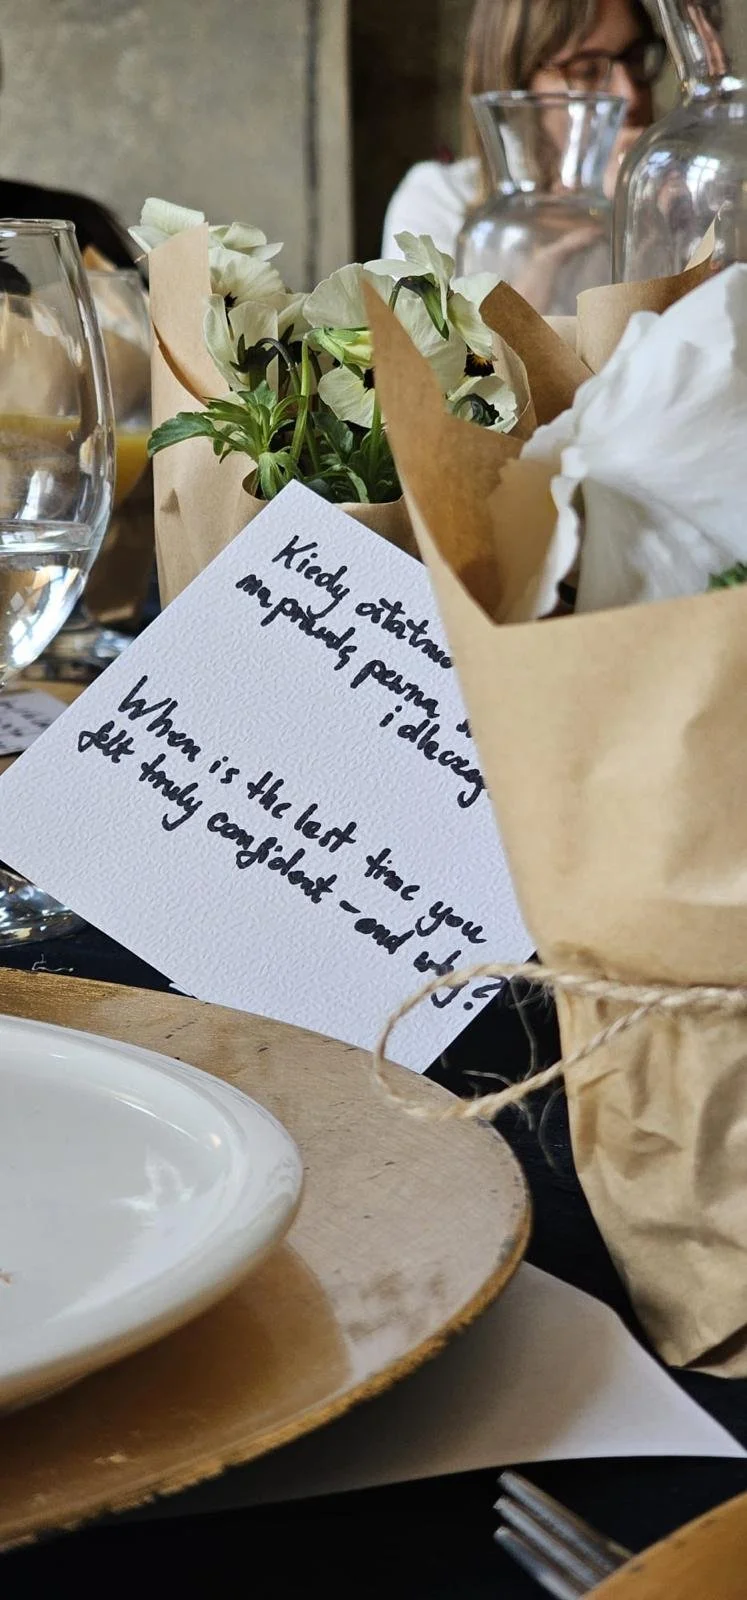 Kiedy ostatnio
naprawdę pewna
i dlaczeg
When is the last time you
felt truly confident - and why?